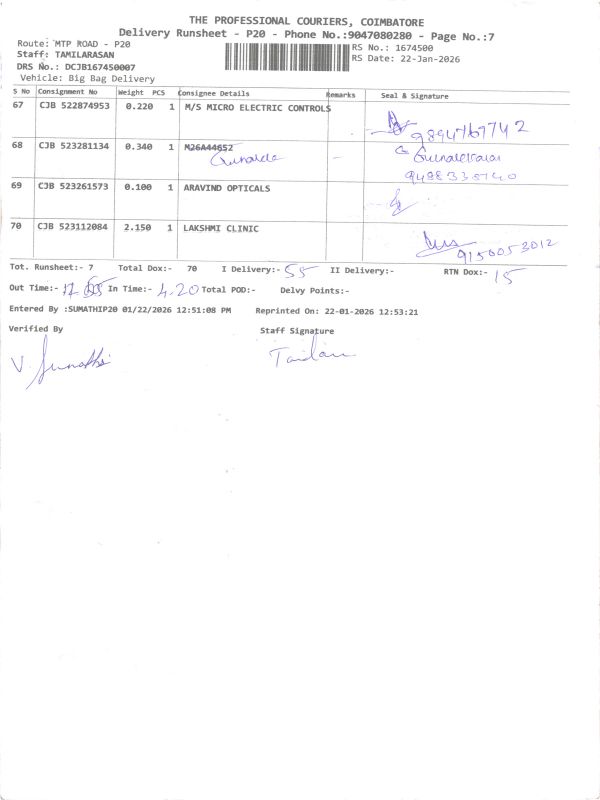 THE PROFESSIONAL COURIERS, COIMBATORE
Delivery Runsheet - P20 - Phone No.:9047080280 - Page No.:7
Route: MTP ROAD - P20
RS No.: 1674500
Staff: TAMILARASAN
RS Date: 22-Jan-2026
DRS No.: DCJB167450007
Vehicle: Big Bag Delivery
S No Consignment No Weight PCS Consignee Details Remarks Seal & Signature
67 CJB 522874953 0.220 1 M/S MICRO ELECTRIC CONTROLS
9894767742
68 CJB 523281134 0.340 1 M26A44652 -
69 CJB 523261573 0.100 1 ARAVIND OPTICALS
70 CJB 523112084 2.150 1 LAKSHMI CLINIC
9150053012
Tot. Runsheet:- 7 Total Dox:- 70 I Delivery:- 55 II Delivery:- RTN Dox:- 15
Out Time:- In Time:- 4.20 Total POD:- Delvy Points:-
Entered By :SUMATHIP20 01/22/2026 12:51:08 PM Reprinted On: 22-01-2026 12:53:21
Verified By Staff Signature